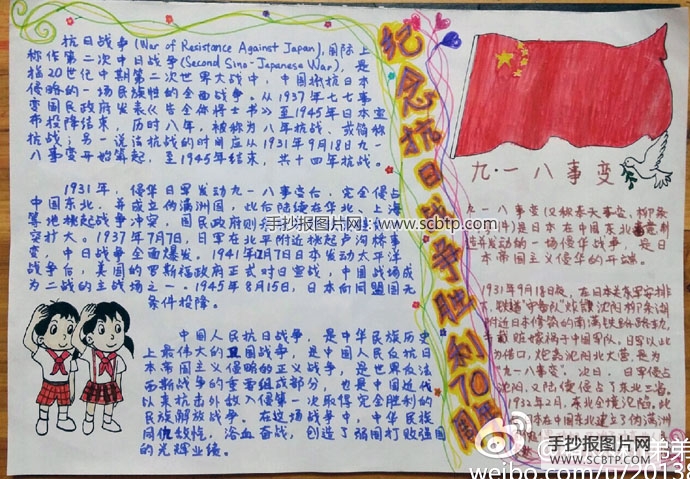 抗日战争(War of Resistance Against Japan),国际上
称作第二次中日战争(Second Sino-Japanese War),是
指20世纪中期第二次世界大战中,中国抵抗日本
侵略的一场民族性的全面战争。从1937年七七事
变国民政府发表《告全体将士书》至1945年日本宣
布投降结束,历时八年,被称为八年抗战、或简称
抗战;另一说法抗战的时间应从1931年9月18日九一
八事变开始算起,至1945年结束,共十四年抗战。
1931年,侵华日军发动九一八事变后,完全侵占
中国东北,并成立伪满洲国,此后陆续在华北、上海
等地挑起战争冲突,国民政府则
突扩大。1937年7月7日,日军在北平附近挑起卢沟桥事
变,中日战争全面爆发。1941年12月7日日本发动太平洋
战争后,美国的罗斯福政府正式对日宣战,中国战场成
为二战的主战场之一。1945年8月15日,日本向同盟国无
条件投降。
中国人民抗日战争,是中华民族历史
上最伟大的卫国战争,是中国人民反抗日
本帝国主义侵略的正义战争,是世界反法
西斯战争的重要组成部分,也是中国近代
以来抗击外敌入侵第一次取得完全胜利的
民族解放战争。在这场战争中,中华民族
同仇敌忾,浴血奋战,创造了弱国打败强国
的光辉业绩。
纪念抗日战争胜利70周年
九·一八事变
九一八事变(又称奉天事变、柳条
件)是日本在中国东北蓄意制
造并发动的一场侵华战争,是日
本帝国主义侵华的开端。
1931年9月18日夜,在日本关东军安排
下,铁道"守备队"炸毁沈阳柳条湖
附近日本修筑的南满铁路路轨,
并栽赃嫁祸于中国军队。日军以此
为借口,炮轰沈阳北大营,是为
"九一八事变"。次日,日军侵占
沈阳,又陆续侵占了东北三省。
1932年2月,东北全境沦陷。此
本在中国东北建立了伪满洲
手抄报图片网
www.scbtp.com
手抄报图片网
SCBTP.COM
弟弟
weibo.com/u/20138